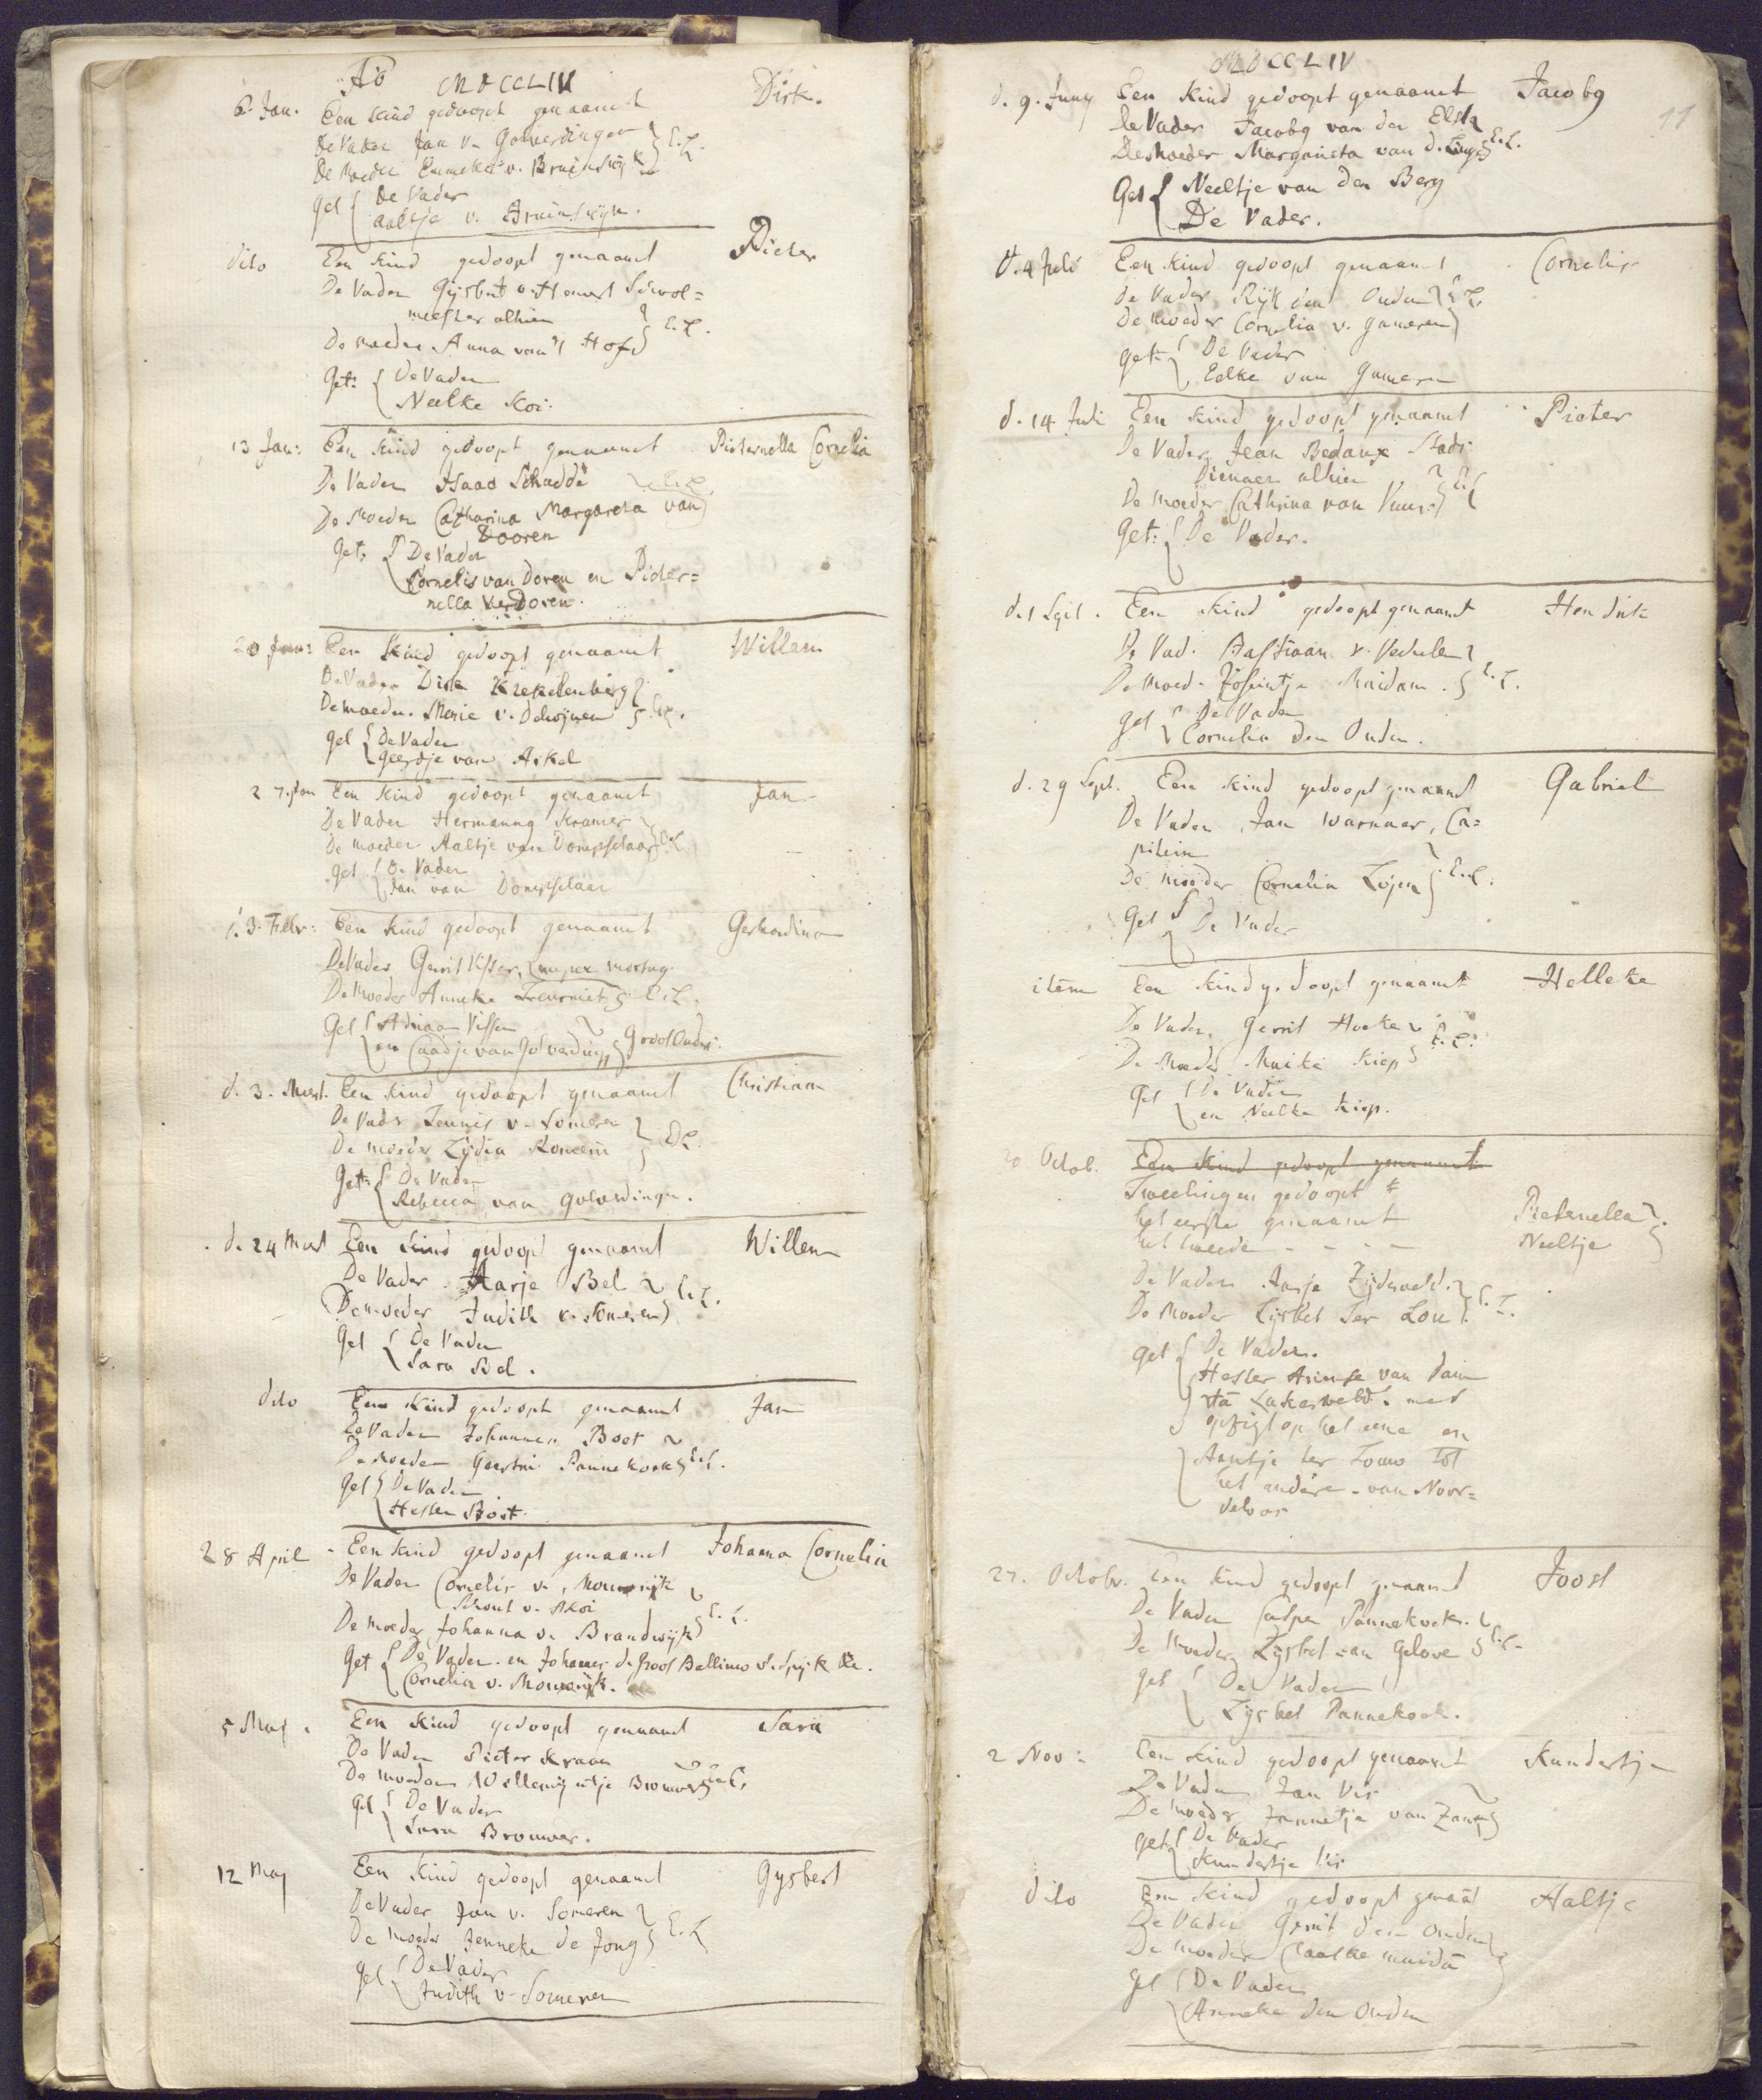 Ao MDCCLIV
6. Jan. Een kind gedoopt genaamt Dirk.
De Vader Jan v. Goverdingen
De Moeder Emmeke v. Bruinswijk } E.L.
Get { De Vader
Aaltje v. Bruinswijk.
dito Een kind gedoopt genaamt Pieter
De Vader Gijsbert v. Hemert School=
meester alhier
De moeder Anna van 't Hof } E.L.
Get: { De Vader
Neelke Koi.
13 Jan: Een kind gedoopt genaamt Pieternella Cornelia
De Vader Isaac Schadde } E.L.
De Moeder Catharina Margareta van
Dooren
Get: { De Vader
Cornelis van Doren en Pieter=
nella van Doren.
20 Jan: Een kind gedoopt genaamt Willem
De Vader Dirk Krekelenberg
De moeder Marie v. } E.L.
Get { De Vader
Geertje van Arkel
27. Jan Een kind gedoopt genaamt Jan
De Vader Hermanus Kramer
De moeder Aaltje van Dompselaar } E.L.
Get { De Vader
Jan van Dompselaar
d. 3. Febr: Een kind gedoopt genaamt Gerhardina
De Vader Gerrit Visser, nuper mortuus
De Moeder Anneke Treurniet } E.L.
Get { Adriaan Visser
en van } Groot Ouders.
d. 3. Mert. Een kind gedoopt genaamt Christiaan
De Vader Teunis v. Someren
De moeder Lijdia Romein } E.L.
Get: { De Vader
Rebecca van Goverdingen.
d. 24 Mert Een kind gedoopt genaamt Willem
De Vader Aarje Bel } E.L.
De moeder Judith v. Someren
Get { De Vader
Sara Bel.
dito Een kind gedoopt genaamt Jan
De Vader Johannes Boet
De moeder Geertrui Pannekoek } E.L.
Get { De Vader
Hester Boet.
28 April Een kind gedoopt genaamt Johanna Cornelia
De Vader Cornelis v. Mourwijk
Schout v. Akoi
De moeder Johanna v. Brandwijk } E.L.
Get { De Vader en Johannes de Groot
Cornelia v. Mourwijk.
5 Maj. Een kind gedoopt genaamt Sara
De Vader Pieter Kraan
De moeder Willemijntje Brouwer } E.L.
Get { De Vader
Sara Brouwer.
12 Maj Een kind gedoopt genaamt Gysbert
De Vader Jan v. Someren
De moeder Jenneke de Jong } E.L.
Get { De Vader
Judith v. Someren
MDCCLIV
11
d. 9. Juny Een kind gedoopt genaamt Jacobg
De Vader Jacobg van der Elst
De Moeder Margrieta van d. } E.L.
Get { Neeltje van den Berg
De Vader.
d. 4 Juli Een kind gedoopt genaamt Cornelis
De Vader Rijk den Ouden } E.L.
De moeder Cornelia v. Gameren
Get: { De Vader
Eelke van Gameren
d. 14 Juli Een kind gedoopt genaamt Pieter
De Vader Jean Bedaux Stads
Dienaer alhier
De moeder Cathrina van Vuur } E.L.
Get: { De Vader.
d. 1 Sept. Een kind gedoopt genaamt Hendrik
De Vad. Bastiaan v.
De Moed. Josientje Muidam. } E.L.
Get { De Vader
Cornelia den Ouden.
d. 29 Sept. Een kind gedoopt genaamt Gabriel
De Vader Jan Warnaer, Ca=
pitein
De moeder Cornelia } E.L.
Get { De Vader
item Een kind gedoopt genaamt Helleke
De Vader Gerrit Hoeke
De Moeder Maike Kiep } E.L.
Get { De Vader
en Neelke Kiep.
20 Octob. Een kind gedoopt genaamt
Tweelingen gedoopt
het eerste genaamt Pieternella
het tweede - - - Neeltje
De Vader Aarje Zijderveld
De Moeder Lijsbet Ter Lou } E.L.
Get { De Vader.
Hester van Dam
Lakerveld. met
opzigt op het eene en
Aantje ter Louw tot
het andere - van Noor=
deloos
27. Octobr. Een kind gedoopt genaamt Joost
De Vader Casper Pannekoek.
De Moeder Lijsbet van Gelove } E.L.
Get { De Vader
Lijsbet Pannekoek.
2 Nov: Een kind gedoopt genaamt Kundertje
De Vader Jan Vis
De Moeder Jannetje van Zant
Get { De Vader
Kundertje Vis
dito Een kind gedoopt genaamt Aaltje
De Vader Gerrit den Ouden
De Moeder Muidam
Get { De Vader
Anneke den Ouden